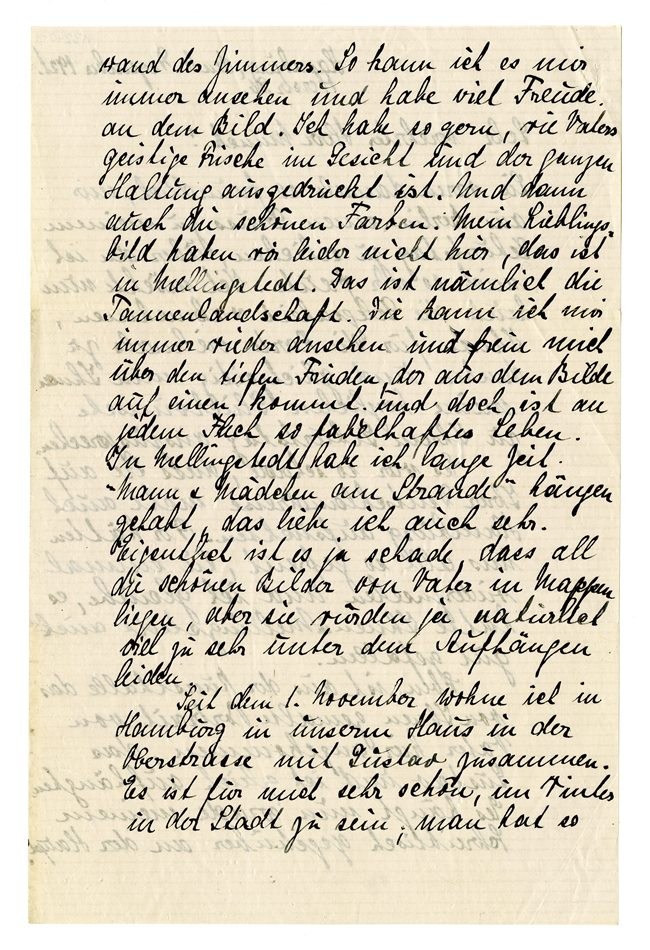 wand des Zimmers. So kann ich es mir
immer ansehen und habe viel Freude
an dem Bild. Ich habe so gern, wie Vaters
geistige Frische im Gesicht und der ganzen
Haltung ausgedrückt ist. Und dann
auch die schönen Farben. Mein Lieblings-
bild haben wir leider nicht hier, das ist
in Mellingstedt. Das ist nämlich die
Tannenlandschaft. Die kann ich mir
immer wieder ansehen und freue mich
über den tiefen Frieden, der aus dem Bilde
auf einen kommt. und doch ist an
jedem Fleck so fabelhaftes Leben.
In Mellingstedt habe ich lange Zeit
"Mann & Mädchen am Strande" hängen
gehabt, das liebe ich auch sehr.
Eigentlich ist es ja schade, dass all
die schönen Bilder von Vater in Mappen
liegen, aber sie würden ja natürlich
viel zu sehr unter dem Aufhängen
leiden.
Seit dem 1. November wohne ich in
Hamburg in unserm Haus in der
Oberstrasse mit Gustav zusammen.
Es ist für mich sehr schön, im Winter
in der Stadt zu sein; man hat so